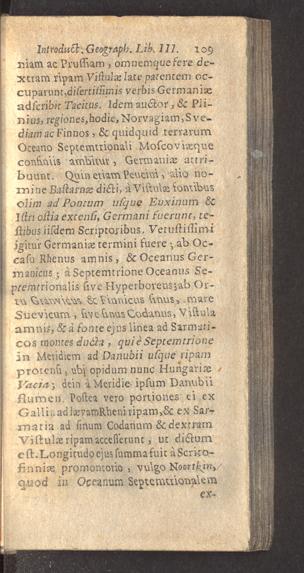 Introduct. Geograph. Lib. III. 109
niam ac Prussiam, omnemque fere de-
xtram ripam Vistulæ late patentem oc-
cuparunt, disertissimis verbis Germaniæ
adscribit Tacitus. Idem auctor, & Pli-
nius, regiones, hodie, Norvagiam, Sve-
diam ac Finnos, & quidquid terrarum
Oceano Septemtrionali Moscoviæque
confiniis ambitur, Germaniæ attri-
buunt. Quin etiam Peucini, alio no-
mine Bastarnæ dicti, à Vistulæ fontibus
olim ad Pontum usque Euxinum &
Istri ostia extensi, Germani fuerunt, te-
stibus iisdem Scriptoribus. Vetustissimi
igitur Germaniæ termini fuere; ab Oc-
casu Rhenus amnis, & Oceanus Ger-
manicus; à Septemtrione Oceanus Se-
ptemtrionalis sive Hyperboreus; ab Or-
tu Granvicus & Finnicus sinus, mare
Suevicum, sive sinus Codanus, Vistula
amnis, & à fonte ejus linea ad Sarmati-
cos montes ducta, qui è Septemtrione
in Meridiem ad Danubii usque ripam
protensi, ubi opidum nunc Hungariæ
Vacia; dein à Meridie ipsum Danubii
flumen. Postea vero portiones ei ex
Gallia ad lævam Rheni ripam, & ex Sar-
matia ad sinum Codanum & dextram
Vistulæ ripam accesserunt, ut dictum
est. Longitudo ejus summa fuit à Scrito-
finniæ promontorio, vulgo Noortkin,
quod in Oceanum Septemtrionalem
ex-